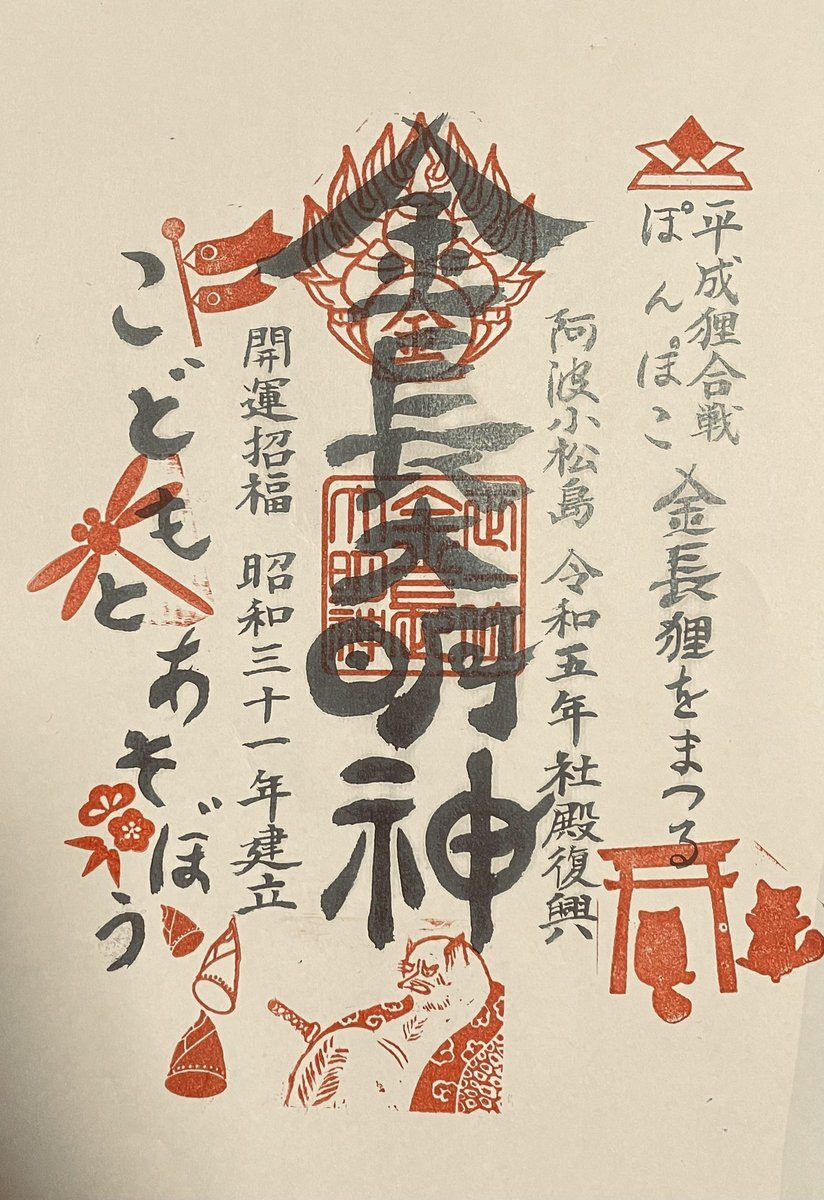 平成狸合戦
ぽんぽこ
金長狸をまつる
阿波小松島 令和五年社殿復興
金長大明神
金
開運招福 昭和三十一年建立
こどもとあそぼう